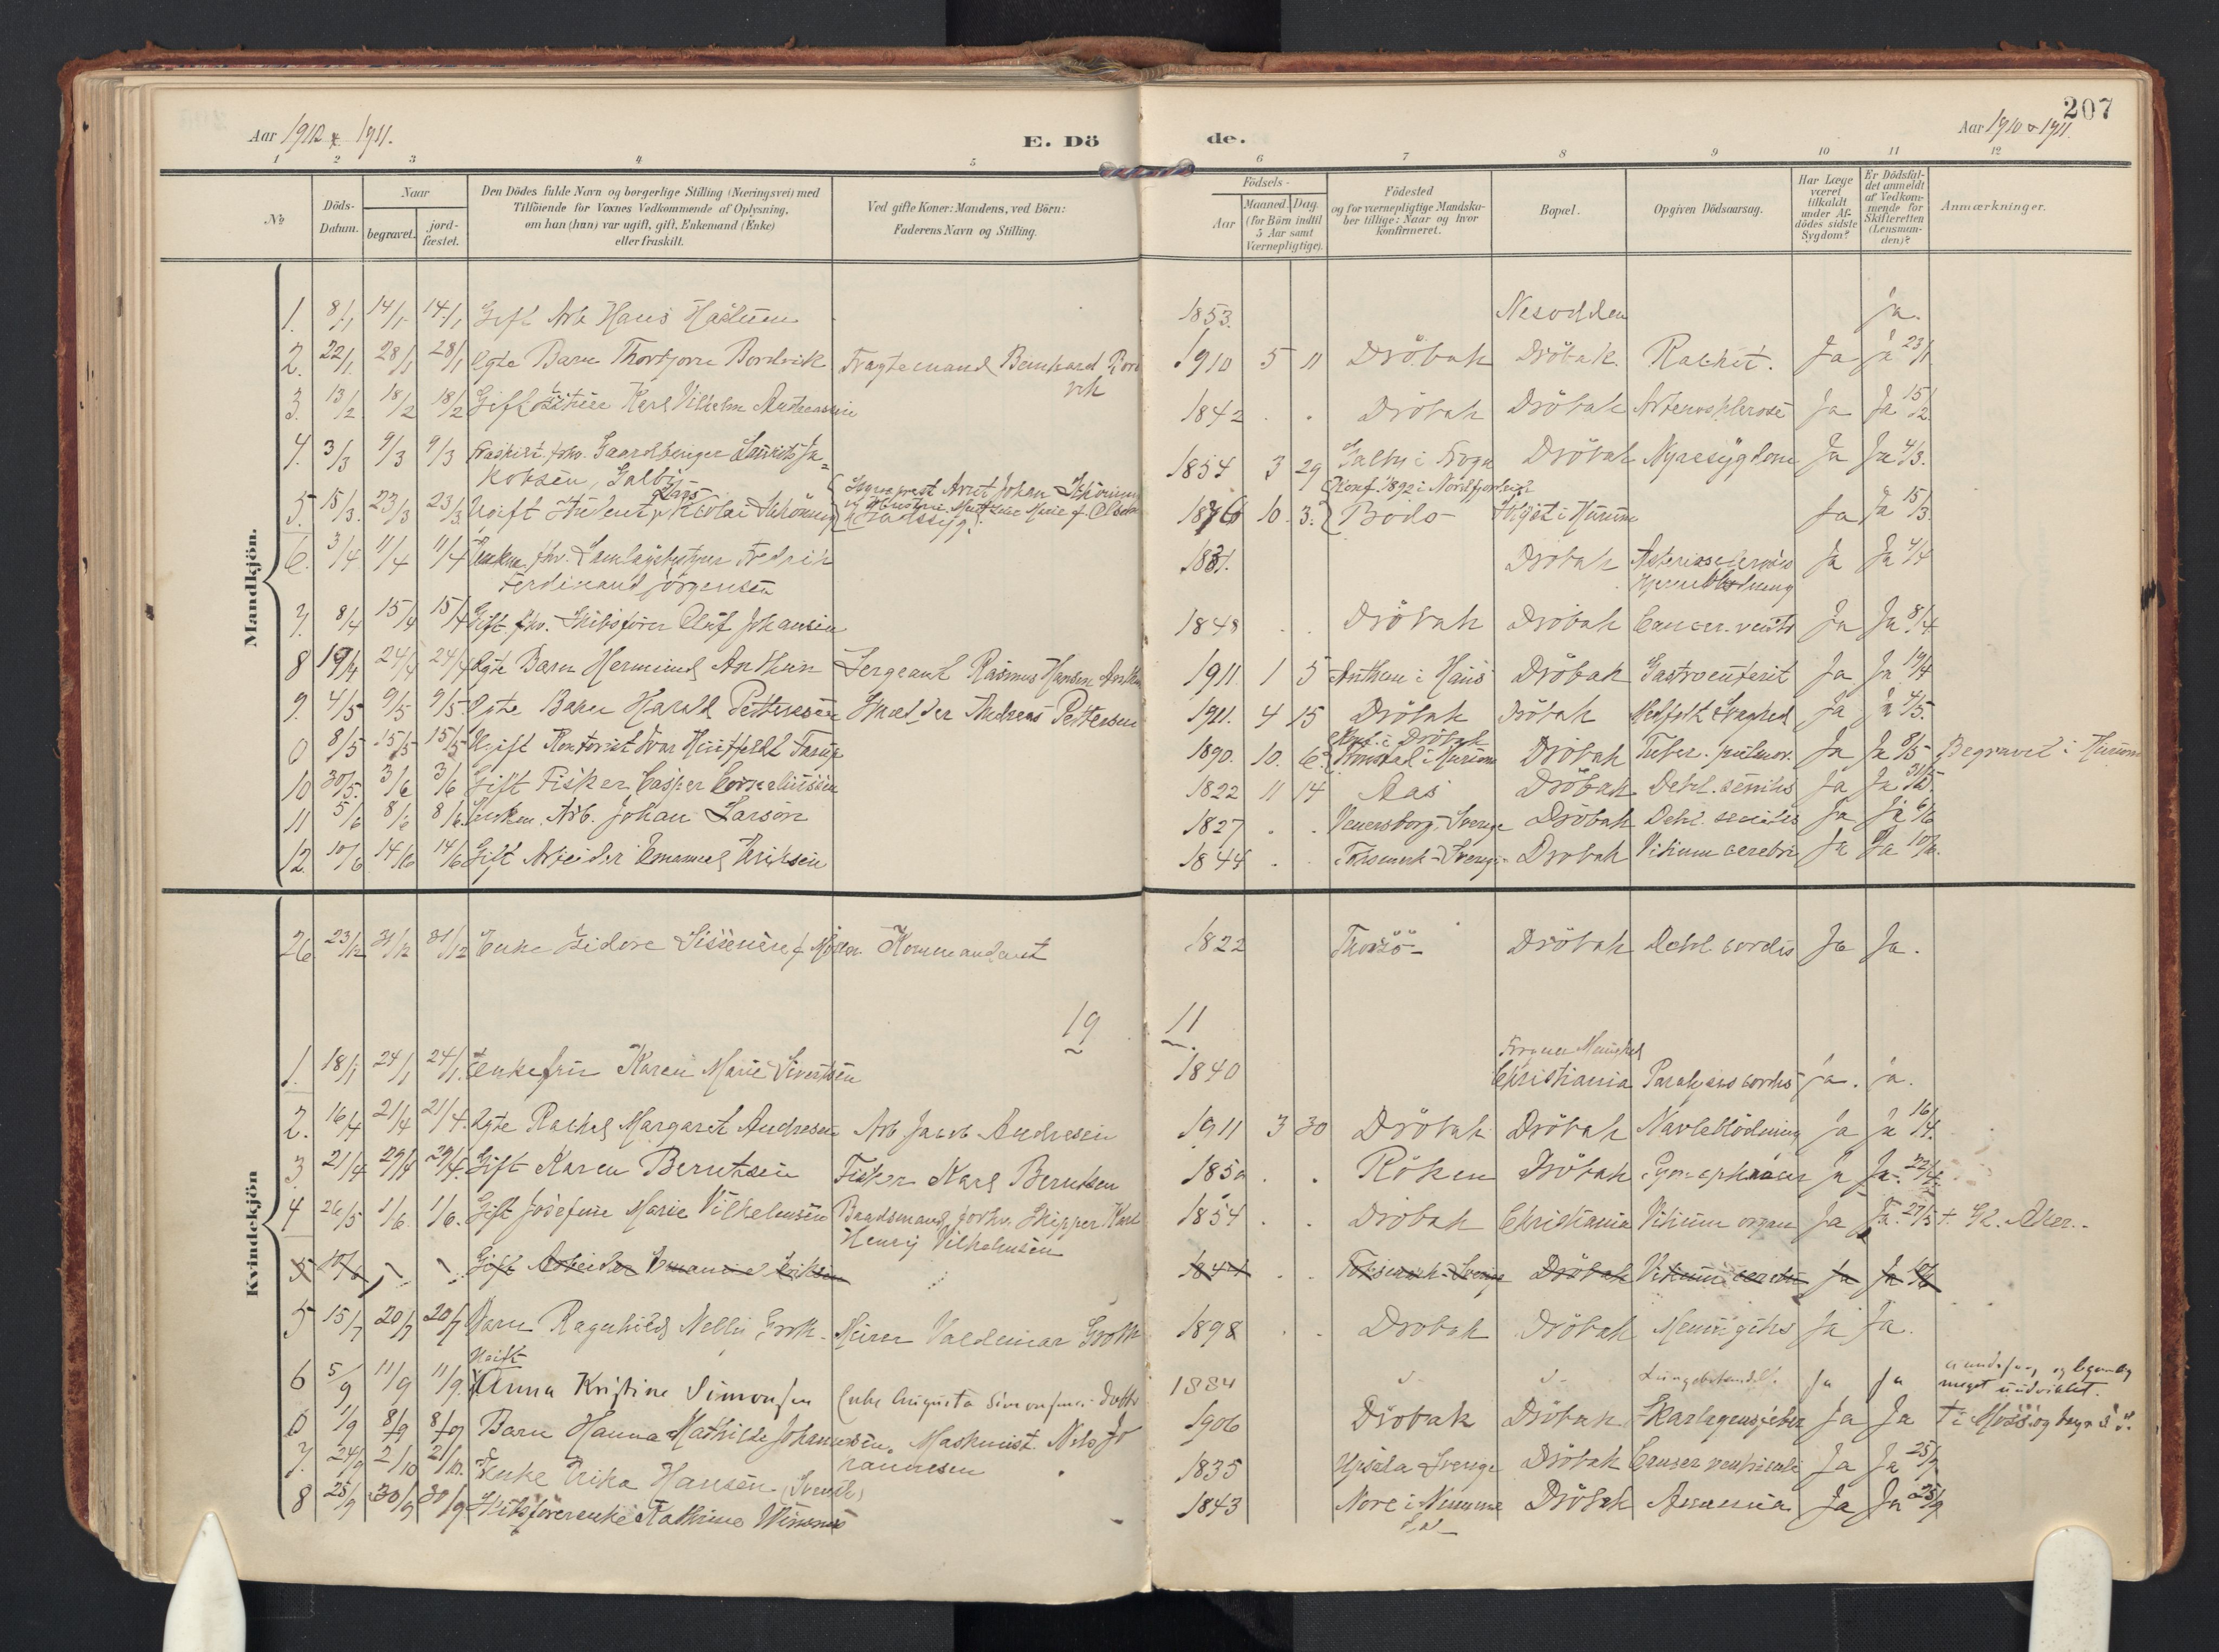 207
Aar 1910 & 1911.
E. Dö de.
Aar 1910 & 1911.
1 2 3 4 5 6 7 8 9 10 11 12
No
Döds-Datum.
Naar
begravet.
jord-fæstet.
Den Dödes fulde Navn og borgerlige Stilling (Næringsvei) med
Tilföiende for Voxnes Vedkommende af Oplysning,
om han (hun) var ugift, gift, Enkemand (Enke)
eller fraskilt.
Ved gifte Koner: Mandens, ved Börn:
Faderens Navn og Stilling.
Födsels-
Aar
Maaned. Dag.
(for Börn indtil
5 Aar samt
Værnepligtige).
Födested
og for værnepligtige Mandska-
ber tillige: Naar og hvor
konfirmeret.
Bopæl.
Opgiven Dödsaarsag.
Har Læge
været
tilkaldt
under Af-
dödes sidste
Sygdom?
Er Dödsfal-
det anmeldt
af Vedkom-
mende for
Skifteretten
(Lensman-
den)?
Anmærkninger.
Mandkjön.
1. 8/1 14/1 14/1 Gift Arb Hans 1853. Nesodden ja.
2. 22/1 28/1 28/1 Ægte Barn Thorbjorn Bordvik Fragtemand Bernhard Bord
vik 1910 5 11 Dröbak Dröbak. Rachit. Ja ja 23/1
3. 13/2 18/2 18/2 Gift Karl Vilhelm Andreassen 1842 . . Dröbak Dröbak Ja Ja 15/2
4. 3/3 9/3 9/3 Fraskilt fhv. Gaardbruger Laurits Ja=
kobsen, Galby 1854 3 29 Galby i Frogn Dröbak Nyresygdom Ja Ja 4/3.
5. 15/3. 23/3 23/3 Ugift Student Lars Nicolai Schöning Sogneprest Arnt Johan Schöning 1876 10 3. Konf. 1892 i
Bodö i Hurum Ja Ja 15/3
6. 3/4 11/4 11/4 Enkm. fhv. Fredrik
Ferdinand Jörgensen 1831. Dröbak Ja Ja 4/4
7. 8/4 15/4 15/4 Gift fhv. Skibsförer Oluf Johansen 1848 . . Dröbak Dröbak Cancer. ventr Ja Ja 8/4
8 19/4 24/4 24/4 Ægte Barn Hermund Anthun Sergeant Rasmus Hansen Anthun 1911 1 5 Anthun i Dröbak Gastroenterit Ja Ja 19/4
9. 4/5 9/5 9/5 Ægte Barn Harald Pettersen Andreas Pettersen 1911. 4 15 Dröbak Dröbak Medfödt Svaghed Ja Ja 4/5.
0 8/5 15/5 15/5 Ugift Kontorist Ivar 1890. 10. 6. Konf. i Dröbak
i Hurum Dröbak Tuber. pulmon. Ja Ja 8/5 Begravet i Hurum
10 30/5. 3/6 3/6 Gift Fisker Casper Corneliussen 1822 11 14 Aas Dröbak Debil. senilis Ja Ja 31/5.
11 5/6 8/6 8/6. Enkem. Arb. Johan Larson 1827 . . Venersborg, Sverige Dröbak Debil. senilis Ja Ja 6/6
12. 10/6 14/6 14/6 Gift Arbeider Emanuel Eriksen 1844 . . Sverige Dröbak Vitium cerebri Ja Ja 10/6.
Kvindekjön
26 23/12 31/12 31/12 Enke Isidore f. Möller Kommandant 1822 Dröbak Debil. cordis Ja Ja.
19 11
1. 18/1 24/1 24/1. Enkefru Karen Marie Sivertsen 1840 Frogner Menighed
Christiania Paralysis cordis ja. ja.
2. 16/4 21/4 21/4. Ægte Rachel Margaret Andresen Arb Jacob Andresen 1911 3 30 Dröbak Dröbak Navleblödning ja ja 16/4.
3. 21/4 29/4 29/4. Gift Karen Berntsen Fisker Karl Berntsen 1850 . . Röken Dröbak ja Ja. 22/4.
4 26/5 1/6 1/6. Gift Josefine Marie Vilhelmsen Baadsmand, forhv. Skipper Karl
Henrij Vilhelmsen 1854 . . Dröbak Christiania Vitium organ Ja Ja. 27/5 Aker.
5 10/6 Gift Arbeider Emanuel Eriksen 1844 . . Sverige Dröbak Vitium cerebri Ja Ja
5 15/7 20/7 20/7 Barn Ragnhild Nelly Groth. Murer Valdemar Groth 1898 . . Dröbak Dröbak Meningitis Ja Ja.
6 5/9 11/9 11/9. Ugift
Anna Kristine Simonsen Enke Augusta Simonsens Datter 1884 Ja Ja
meget uudviklet.
0 1/9 8/9 8/9 Barn Hanna Mathilde Johannesen. Maskinist Nils Jo
hannesen 1906 Dröbak Dröbak Skarlagensfeber Ja Ja i Moss og begr. s. s.
7. 24/9 2/10 2/10. Enke Erika Hansen (Svensk) 1835 Upsala Sverige Dröbak Cancer ventriculi Ja Ja 25/9
8 25/9 30/9 30/9 Skibsförerenke Kathrine 1843 Nore i Numme
dal Dröbak Anæmia Ja Ja 25/9